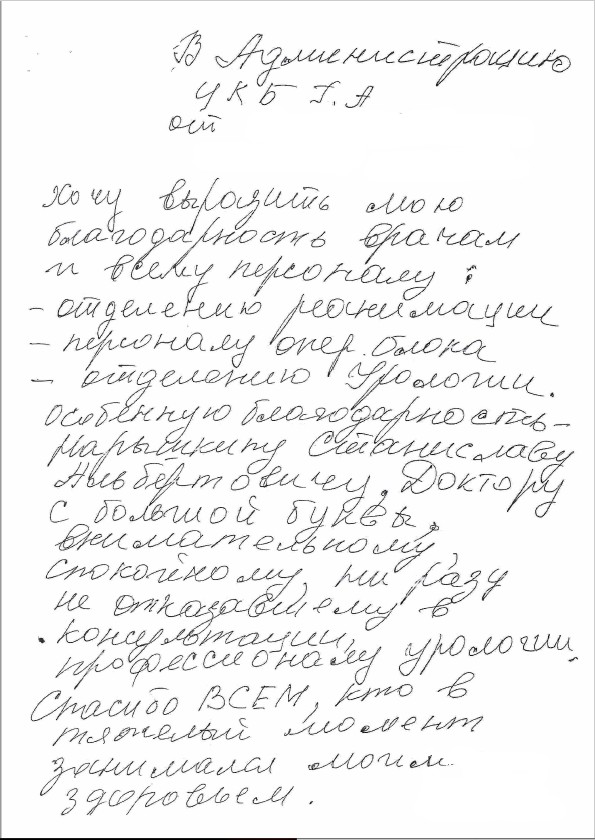 В Администрацию
ЦКБ Г.А
от
Хочу выразить мою
благодарность врачам
и всему персоналу :
- отделению реанимации
- персоналу опер. блока
- отделению Урологии.
Особенную благодарность -
Нарышкину Станиславу
Альбертовичу. Доктору
с большой буквы,
внимательному,
спокойному, ни разу
не отказавшему в
консультации,
профессионалу урологии.
Спасибо ВСЕМ, кто в
тяжелый момент
занимался моим
здоровьем.